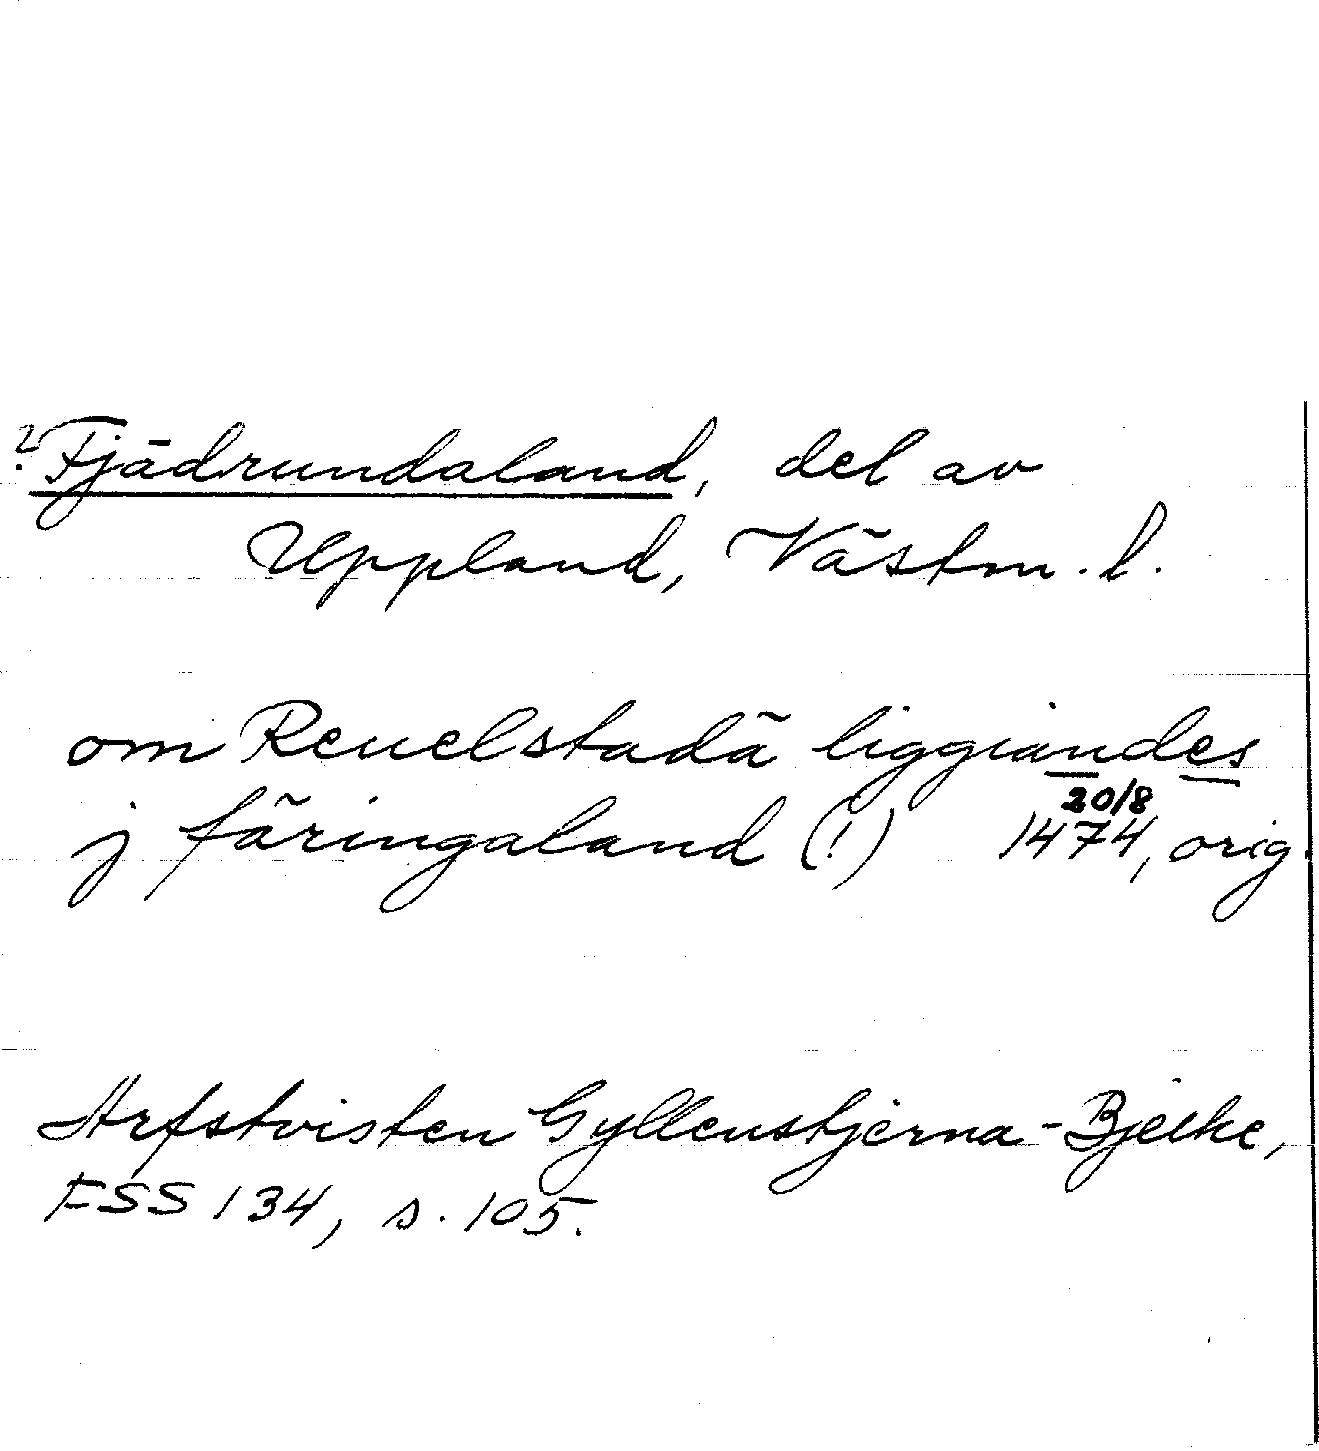 ? Fjädrundaland, del av
Uppland, Västm. l.
om Reuelstadä liggiandes
j färingaland (!) 20/8 1474, orig.
Arfstvisten Gyllenstjerna-Bjelke,
FSS 134, s. 105.